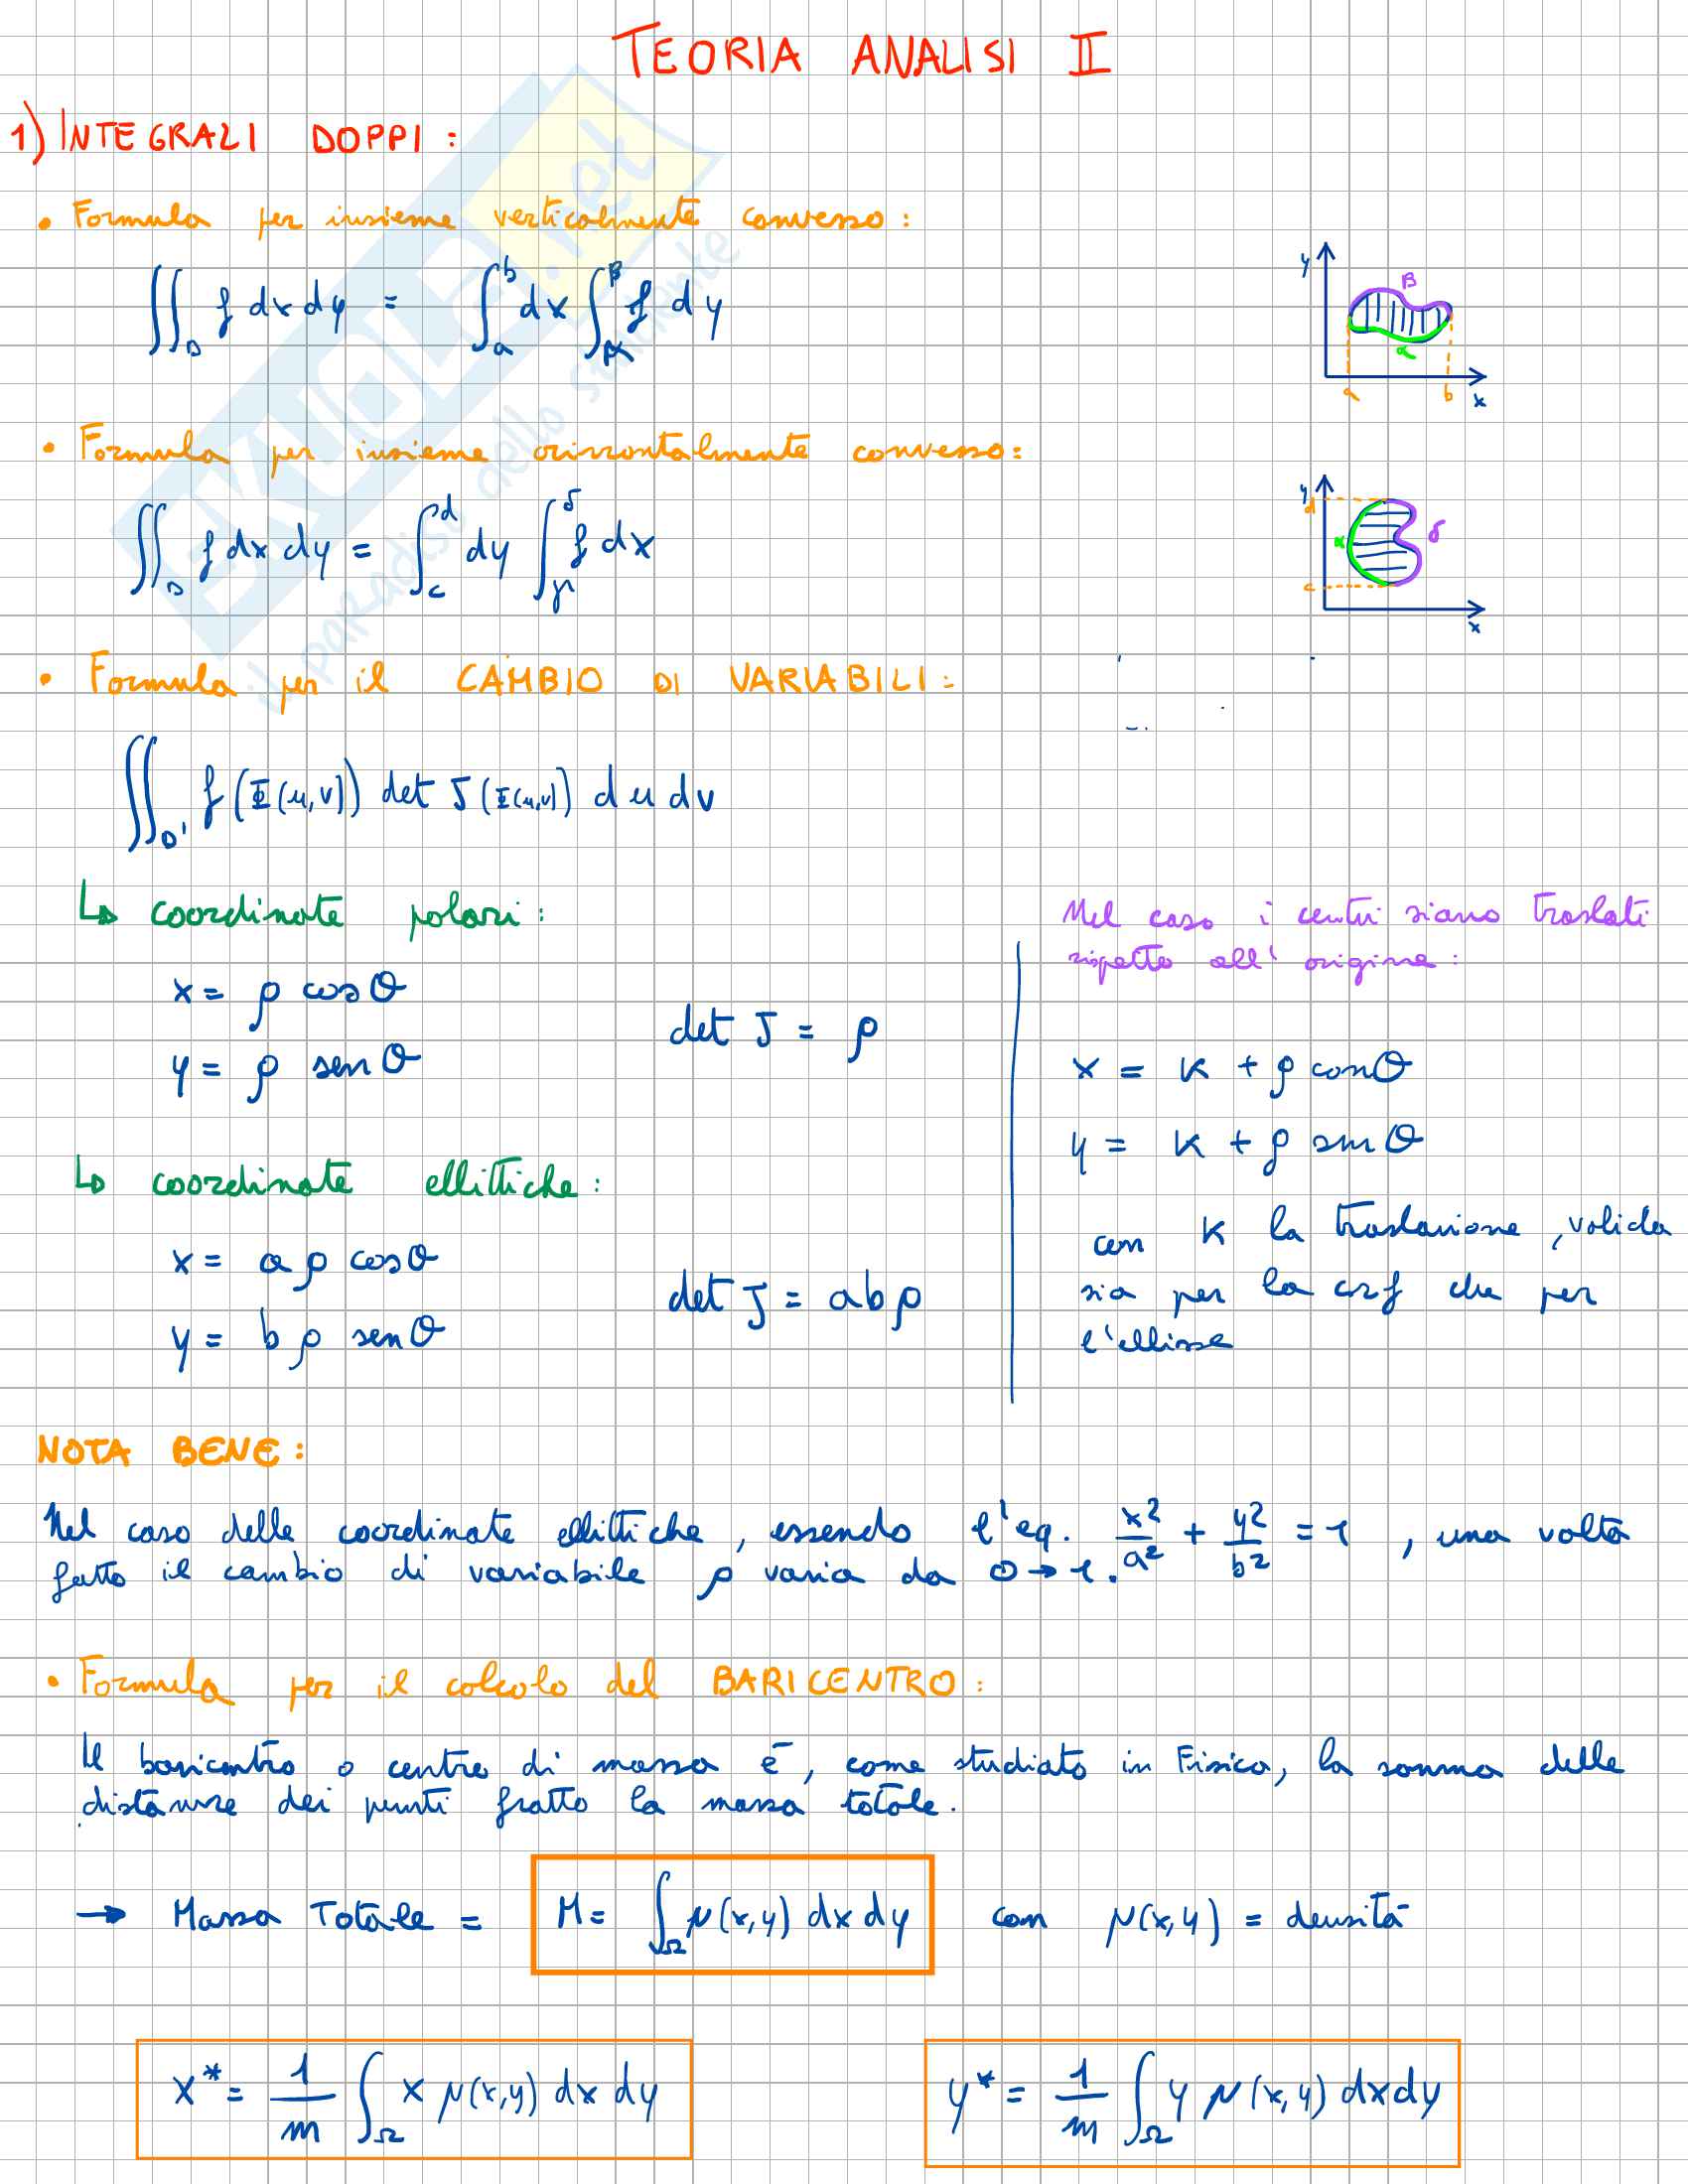 TEORIA ANALISI II
1) INTEGRALI DOPPI :
• Formula per insieme verticalmente convesso :
∬_D f dx dy = ∫_a^b dx ∫_α^β f dy
y β α a b x
• Formula per insieme orizzontalmente convesso :
∬_D f dx dy = ∫_c^d dy ∫_γ^δ f dx
y d α δ c x
• Formula per il CAMBIO DI VARIABILI :
∬_D' f (Φ(u,v)) det J (Φ(u,v)) du dv
↳ coordinate polari :
x = ρ cosθ
y = ρ senθ
det J = ρ
↳ coordinate ellittiche :
x = a ρ cosθ
y = b ρ senθ
det J = abρ
Nel caso i centri siano traslati
rispetto all' origine :
x = K + ρ cosθ
y = K + ρ senθ
con K la traslazione, valida
sia per la crf che per
l'ellisse
NOTA BENE :
Nel caso delle coordinate ellittiche, essendo l'eq. x²/a² + y²/b² = 1 , una volta
fatto il cambio di variabile ρ varia da 0 → 1.
• Formula per il calcolo del BARICENTRO :
Il baricentro o centro di massa è, come studiato in Fisica, la somma delle
distanze dei punti fratto la massa totale.
→ Massa Totale = M = ∫_Ω μ(x,y) dx dy con μ(x,y) = densità
x* = 1/m ∫_Ω x μ(x,y) dx dy y* = 1/m ∫_Ω y μ(x,y) dx dy
SKUOLA.net
il paradiso dello studente